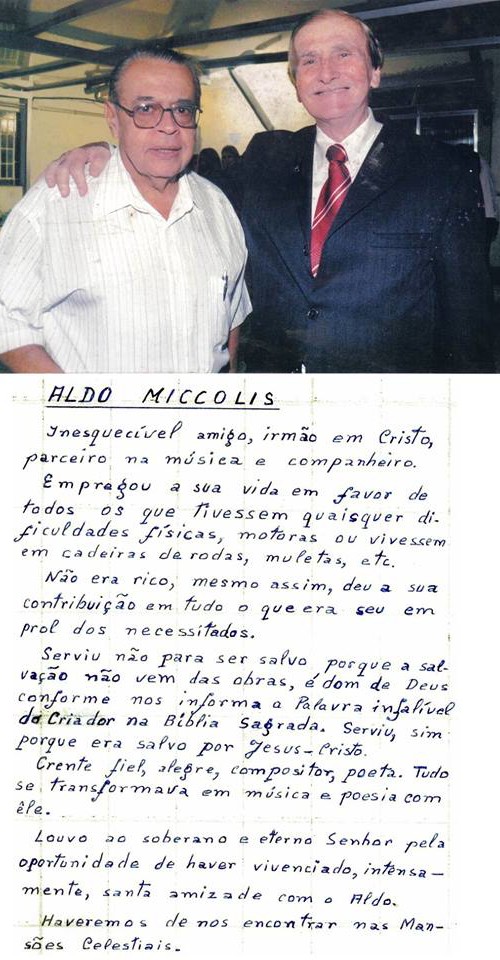 ALDO MICCOLIS
Inesquecível amigo, irmão em Cristo,
parceiro na música e companheiro.
Empregou a sua vida em favor de
todos os que tivessem quaisquer di-
ficuldades físicas, motoras ou vivessem
em cadeiras de rodas, muletas, etc.
Não era rico, mesmo assim, deu a sua
contribuição em tudo o que era seu em
prol dos necessitados.
Serviu não para ser salvo, porque a sal-
vação não vem das obras, é dom de Deus
conforme nos informa a Palavra infalível
do Criador na Bíblia Sagrada. Serviu, sim
porque era salvo por Jesus-Cristo.
Crente fiel, alegre, compositor, poeta. Tudo
se transformava em música e poesia com
êle.
Louvo ao soberano e eterno Senhor pela
oportunidade de haver vivenciado, intensa-
mente, santa amizade com o Aldo.
Haveremos de nos encontrar nas Man-
sões Celestiais.